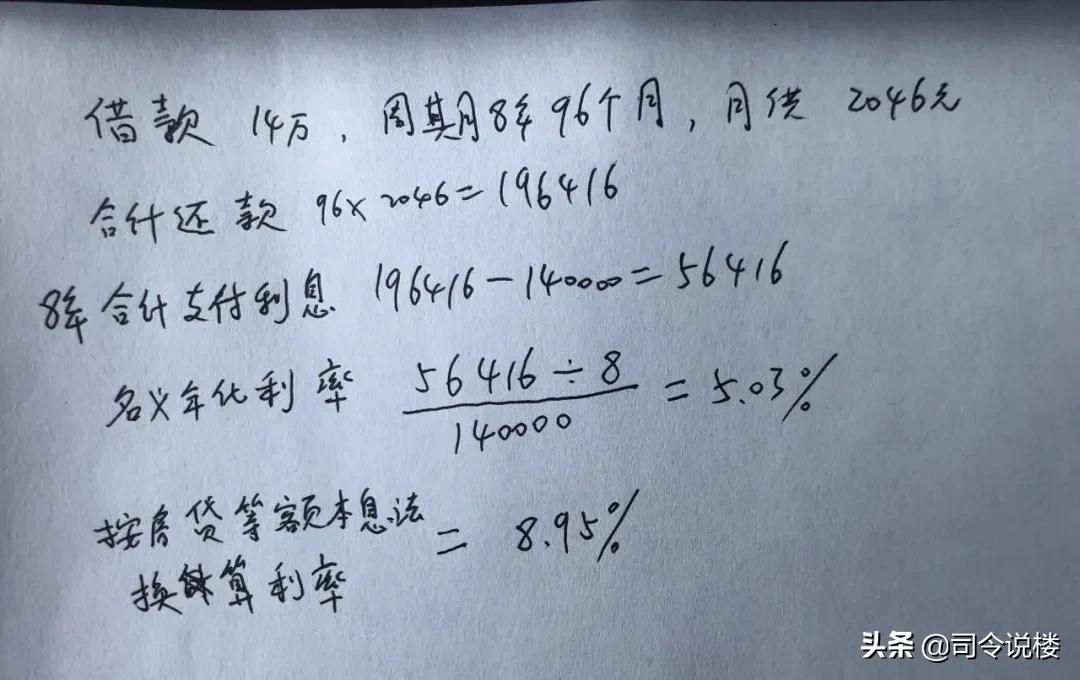 借款 14万,周期月8年96个月,月供 2046元
合计还款 96×2046=196416
8年合计支付利息 196416-140000=56416
名义年化利率 56416÷8/140000=5.03%
按房贷等额本息法
换算利率 = 8.95%
头条 @司令说楼